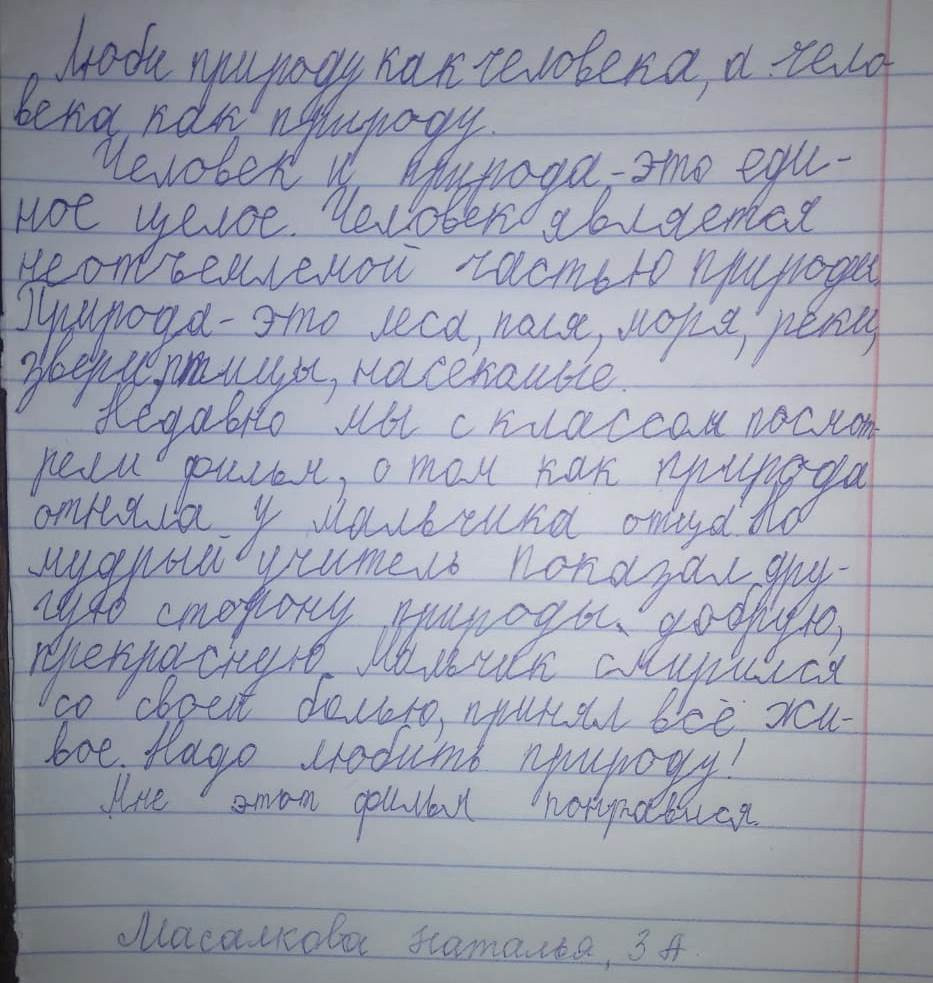 Люби природу как человека, а чело
века как природу.
Человек и природа - это еди-
ное целое. Человек является
неотъемлемой частью природы.
Природа - это леса, поля, моря, реки,
звери, птицы, насекомые.
Недавно мы с классом посмот-
рели фильм, о том как природа
отняла у мальчика отца. Но
мудрый учитель показал дру-
гую сторону природы. добрую,
прекрасную. Мальчик смирился
со своей болью, принял всё жи-
вое. Надо любить природу!
Мне этот фильм понравился.
Масалкова Наталья, 3 А